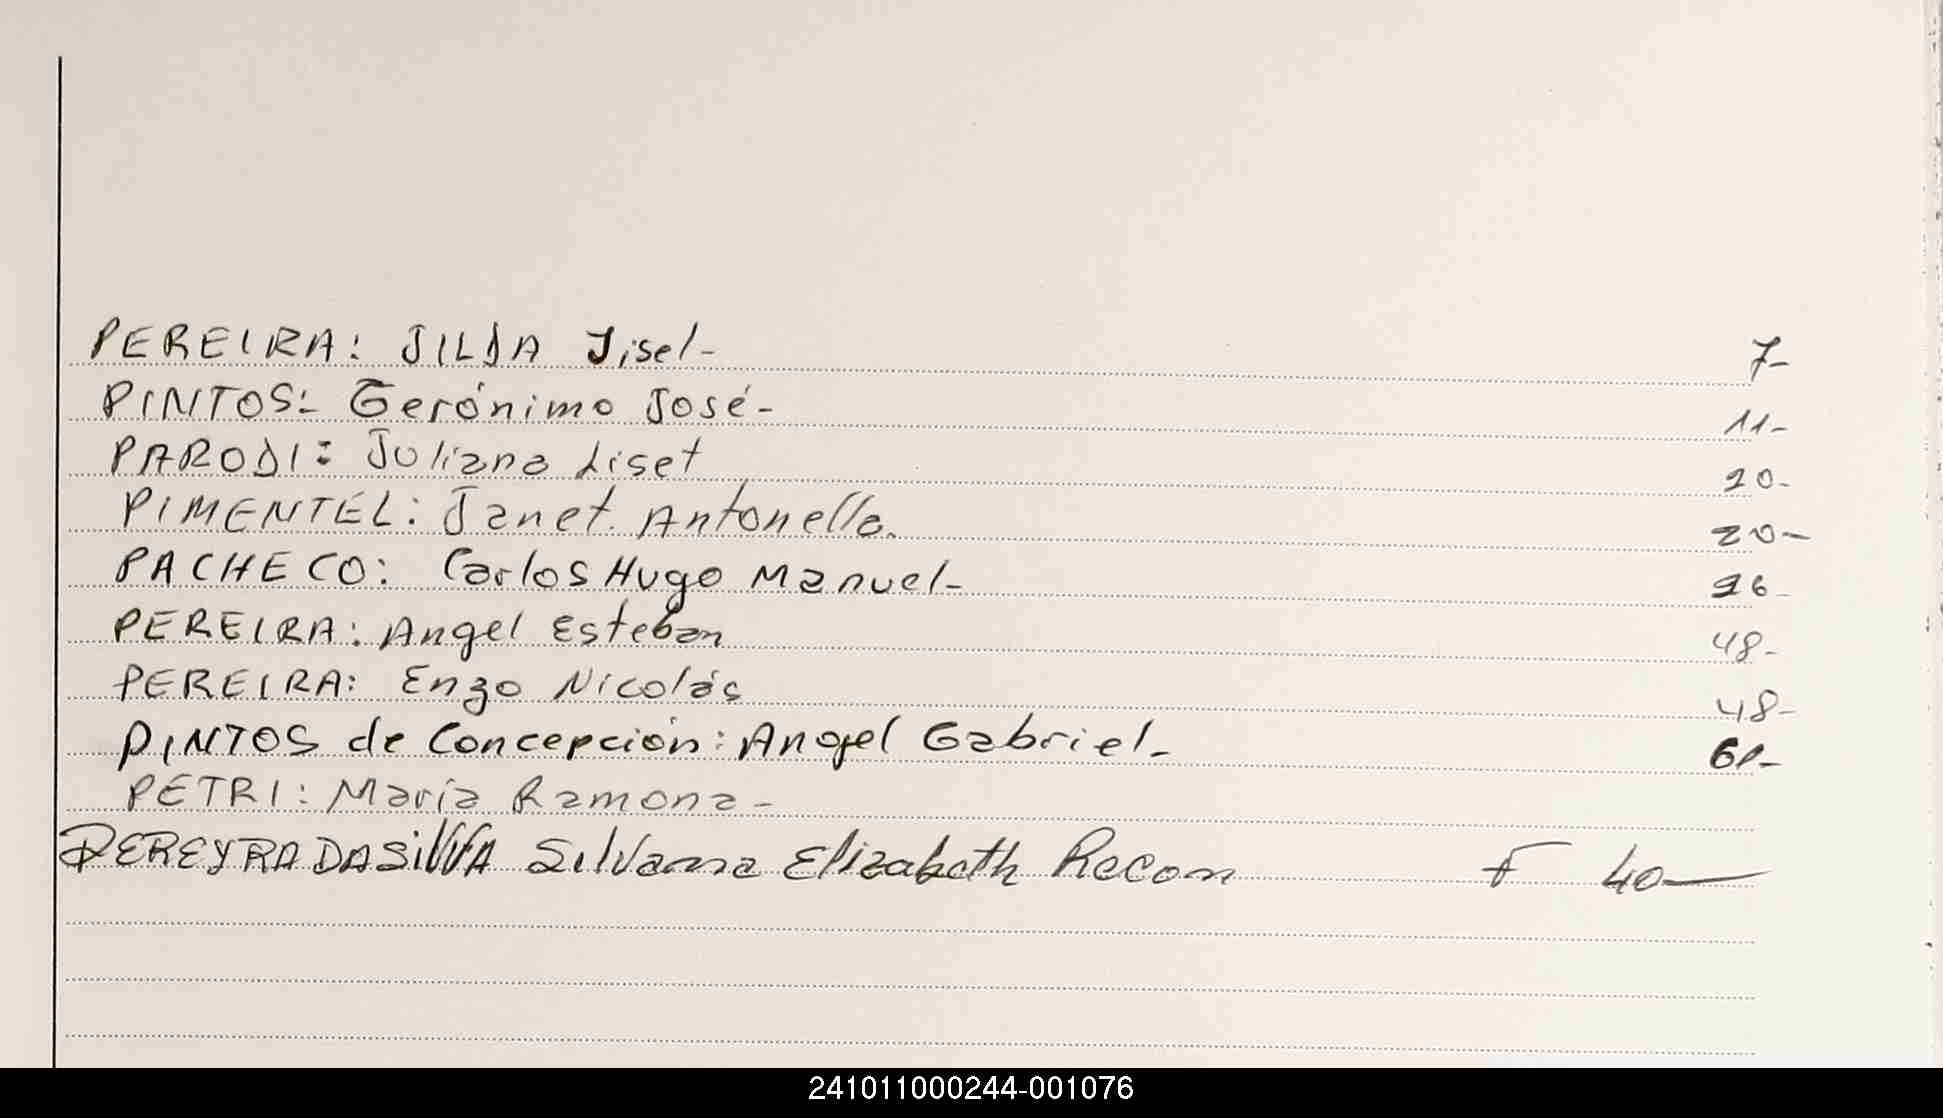 PEREIRA: JILDA Jisel- 7-
PINTOS:- Gerónimo José- 11-
PARODI: Juliana Liset 20-
PIMENTEL: Janet. Antonella. 20-
PACHECO: Carlos Hugo Manuel- 26-
PEREIRA: Angel Esteban 48-
PEREIRA: Enzo Nicolás 48-
PINTOS de Concepción: Angel Gabriel- 61-
PETRI: María Ramona-
PEREYRA DA SILVA Silvana Elizabeth Recon F 40-
241011000244-001076